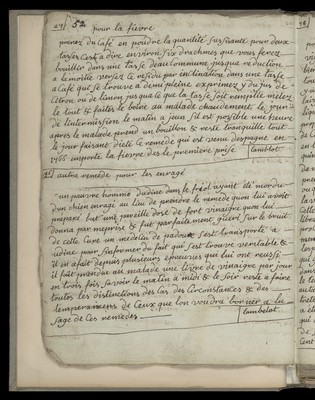 52
pour la fièvre
prenez du café en poudre la quantité suffisante pour deux
tasses c'est a dire environ six drachmes que vous ferez
bouillir dans une tasse deau commune jusque reduction
a la moitie versez ce residu par enclination dans une tasse
a café qui se trouvera demi pleine exprimez y du jus de
Citron ou de limon jusqu'a que la tasse soit remplie melez
le tout & faites le boire au malade chaudement le jour
de lintermission le matin a jeun sil est possible une heure
apres le malade prend un bouillon & reste tranquille tout
le jour faisant diete ce remede qui est venu despagne en
1766 emporte la fievre des le premiere prise
lambelot
autre remede pour les enragé
un pauvre homme dudine dans le frioul ayant été mordu
dun chien enragé au lieu de prendre le remede quon lui avoit
preparé but une pareille dose de fort vinaigre quon lui
donna par meprise & fut parfaitement guerri sur le bruit
de cette Cure un medecin de padoue sest transporté a
udine pour sinformer du fait qui sest trouvé veritable &
il en a fait depuis plusieurs épreuves qui lui ont reussi
il fait prendre au malade une livre de vinaigre par jour
en trois fois savoir le matin a midi & le soir reste a faire
toutes les distinctions des cas des Circonstances & des
temperamens de Ceux que lon voudra borner a lu
sage de Ces remedes
lambelot